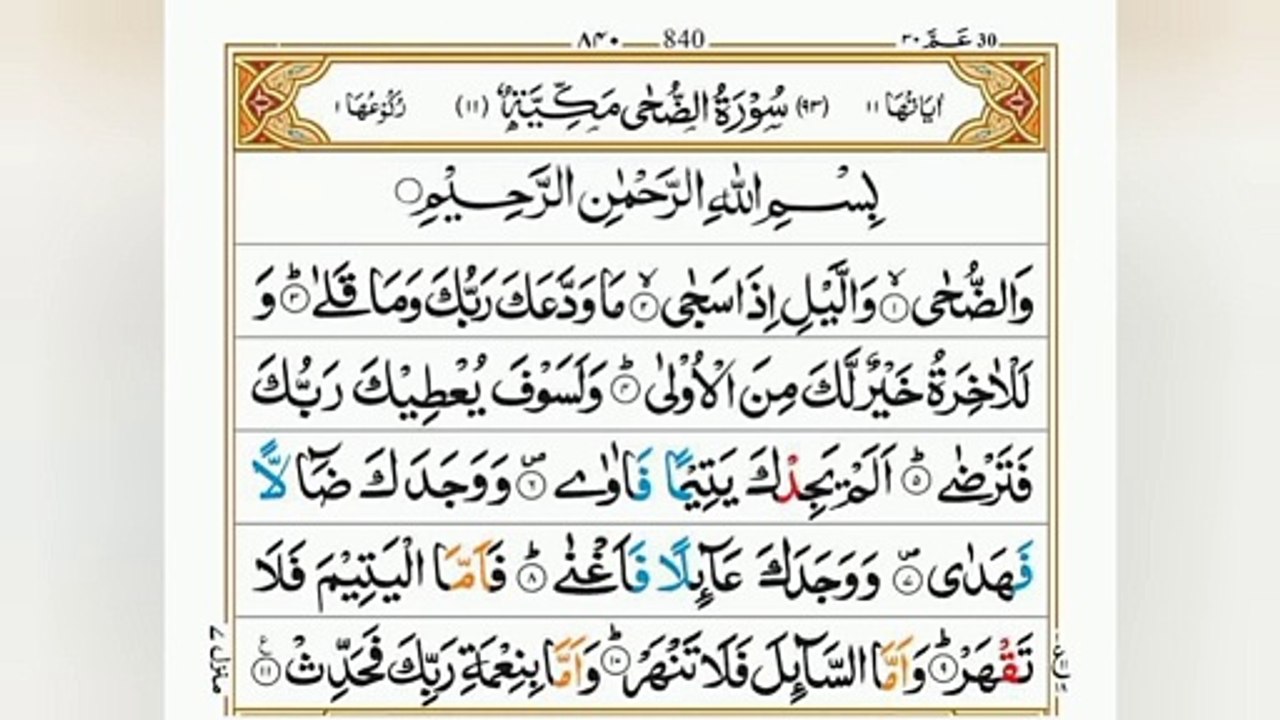 ٨٤٠ 840 عَمَّ ٣٠ 30
اٰيَاتُهَا ١١ (٩٣) سُوْرَةُ الضُّحٰى مَكِّيَّةٌ (١١) رُكُوْعُهَا ١
بِسْمِ اللّٰهِ الرَّحْمٰنِ الرَّحِيْمِ
وَالضُّحٰى ۙ﴿١﴾ وَالَّيْلِ اِذَا سَجٰى ۙ﴿٢﴾ مَا وَدَّعَكَ رَبُّكَ وَمَا قَلٰى ؕ﴿٣﴾ وَ
لَلْاٰخِرَةُ خَيْرٌ لَّكَ مِنَ الْاُوْلٰى ؕ﴿۴﴾ وَلَسَوْفَ يُعْطِيْكَ رَبُّكَ
فَتَرْضٰى ؕ﴿۵﴾ اَلَمْ يَجِدْكَ يَتِيْمًا فَاٰوٰى ۪﴿٦﴾ وَوَجَدَكَ ضَآلًّا
فَهَدٰى ۪﴿٧﴾ وَوَجَدَكَ عَآئِلًا فَاَغْنٰى ؕ﴿٨﴾ فَاَمَّا الْيَتِيْمَ فَلَا
تَقْهَرْ ؕ﴿٩﴾ وَاَمَّا السَّآئِلَ فَلَا تَنْهَرْ ؕ﴿١٠﴾ وَاَمَّا بِنِعْمَةِ رَبِّكَ فَحَدِّثْ ﴿١١﴾
منزل ٧